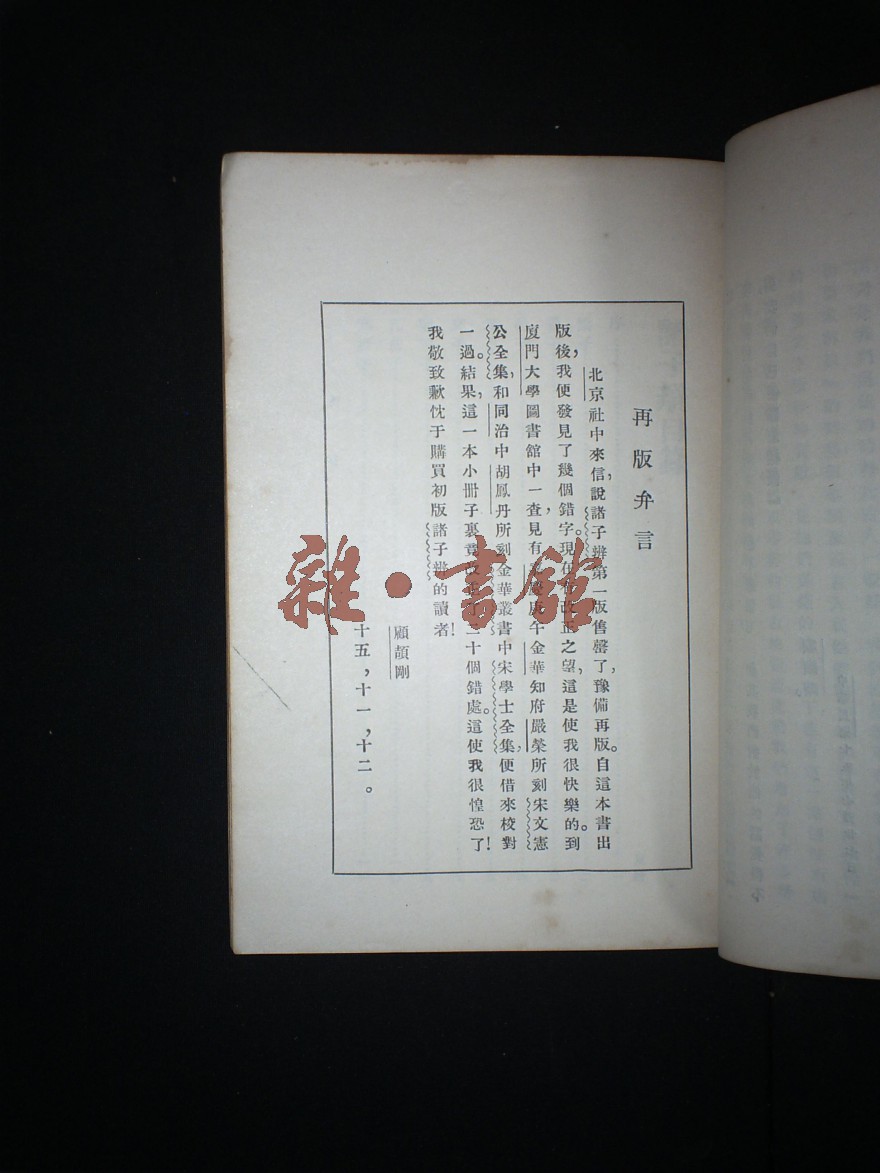 再版弁言
北京社中來信,說諸子辨第一版售罄了,豫備再版。自這本書出
版後,我便發見了幾個錯字。現在有改正之望,這是使我很快樂的。到
廈門大學圖書館中一查,見有嘉慶庚午金華知府嚴榮所刻宋文憲
公全集,和同治中胡鳳丹所刻金華叢書中宋學士全集,便借來校對
一過。結果,這一本小冊子裏竟 二十個錯處。這使我很惶恐了!
我敬致歉忱于購買初版諸子辨的讀者!
顧頡剛
十五,十一,十二。
雜·書館